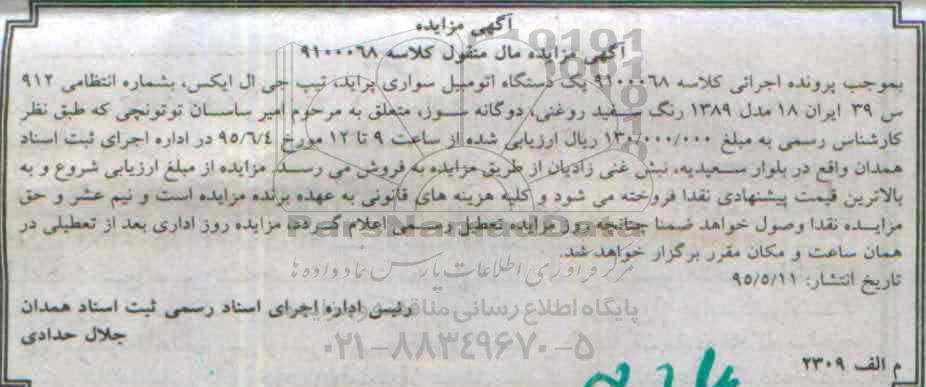 آگهی مزایده
آگهی مزایده مال منقول کلاسه ۹۱۰۰۰۶۸
بموجب پرونده اجرائی کلاسه ۹۱۰۰۰۶۸ یک دستگاه اتومبیل سواری پراید، تیپ جی ال ایکس، بشماره انتظامی ۹۱۲
س ۳۹ ایران ۱۸ مدل ۱۳۸۹ رنگ سفید روغنی، دوگانه سوز، متعلق به مرحوم امیر ساسان توتونچی که طبق نظر
کارشناس رسمی به مبلغ ۱۳۰/۰۰۰/۰۰۰ ریال ارزیابی شده از ساعت ۹ تا ۱۲ مورخ ۹۵/۶/۴ در اداره اجرای ثبت اسناد
همدان واقع در بلوار سعیدیه، نبش غنی زادیان از طریق مزایده به فروش می رسد. مزایده از مبلغ ارزیابی شروع و به
بالاترین قیمت پیشنهادی نقدا فروخته می شود و کلیه هزینه های قانونی به عهده برنده مزایده است و نیم عشر و حق
مزایده نقدا وصول خواهد ضمنا چنانچه روز مزایده تعطیل رسمی اعلام گردد، مزایده روز اداری بعد از تعطیلی در
همان ساعت و مکان مقرر برگزار خواهد شد.
مرکز فرآوری اطلاعات پارس نماد داده ها
تاریخ انتشار: ۹۵/۵/۱۱
رئیس اداره اجرای اسناد رسمی ثبت اسناد همدان
پایگاه اطلاع رسانی مناقصه و مزایده
جلال حدادی
۰۲۱-۸۸۳۴۹۶۷۰-۵
م الف ۲۳۰۹